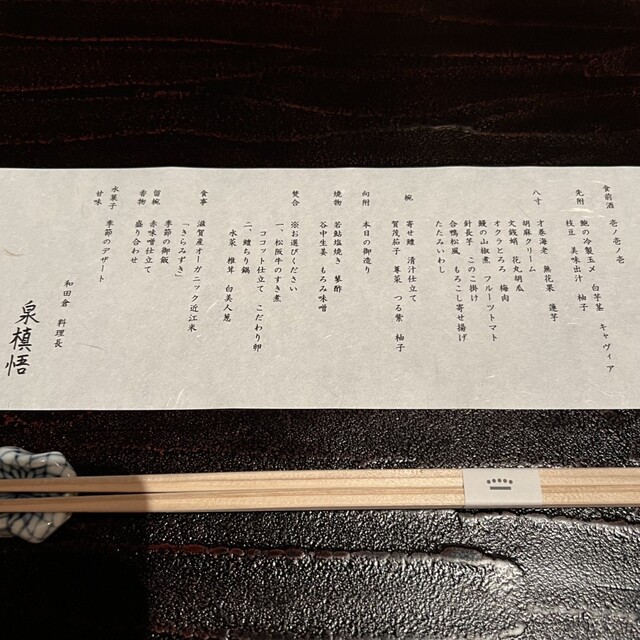 食前酒 壱ノ壱ノ壱
先附 鮑の冷製玉〆 白芋茎 キャヴィア
枝豆 美味出汁 柚子
八寸 才巻海老 無花果 蓮芋
胡麻クリーム
文銭蛸 花丸胡瓜
オクラとろろ 梅肉
鰻の山椒煮 フルーツトマト
針長芋 このこ掛け
合鴨松風 もろこし寄せ揚げ
たたみいわし
椀 寄せ鱧 清汁仕立て
賀茂茄子 蓴菜 つる紫 柚子
向附 本日の御造り
焼物 若鮎塩焼き 蓼酢
谷中生姜 もろみ味噌
焚合 ※お選びください
一、松阪牛のすき煮
ココット仕立て こだわり卵
二、鱧ちり鍋
水菜 椎茸 白美人葱
食事 滋賀産オーガニック近江米
「きらみずき」
季節の御飯
留椀 赤味噌仕立て
香物 盛り合わせ
水菓子
甘味 季節のデザート
和田倉 料理長
泉槙悟